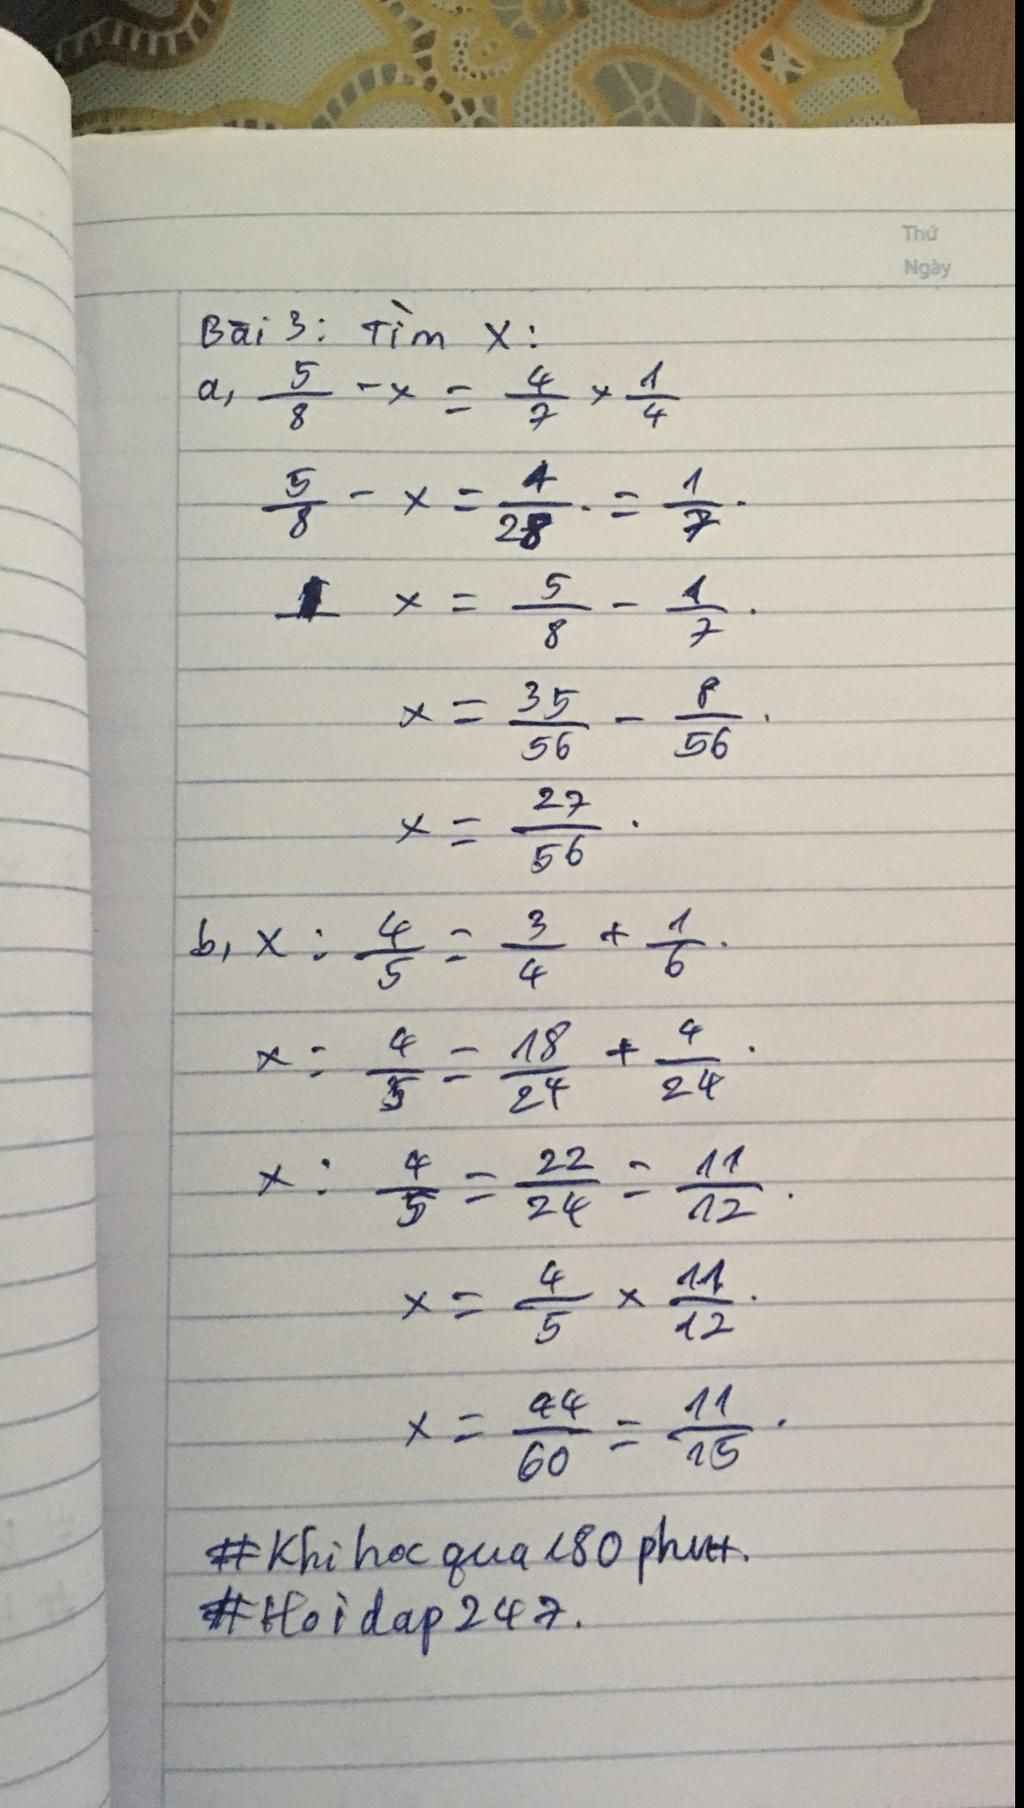 Thứ
Ngày
Bài 3: Tìm X:
a, 5/8 - x = 4/7 x 1/4
5/8 - x = 4/28. = 1/7.
x = 5/8 - 1/7.
x = 35/56 - 8/56.
x = 27/56.
b, x : 4/5 = 3/4 + 1/6.
x : 4/5 = 18/24 + 4/24.
x : 4/5 = 22/24 = 11/12.
x = 4/5 x 11/12.
x = 44/60 = 11/15.
#Khi hoc qua 180 phut.
#Hoi dap 247.